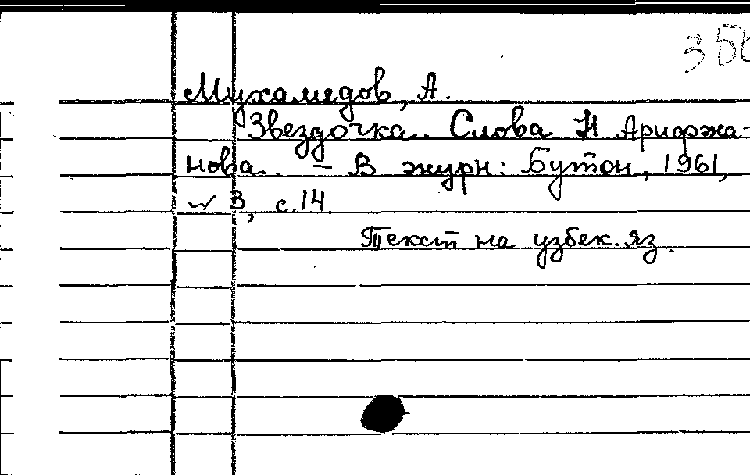 358
Мухамедов, А.
Звездочка. Слова Н Арифжа-
нова. – В журн: Бутон, 1961,
№ 3, с. 14.
Текст на узбек. яз.